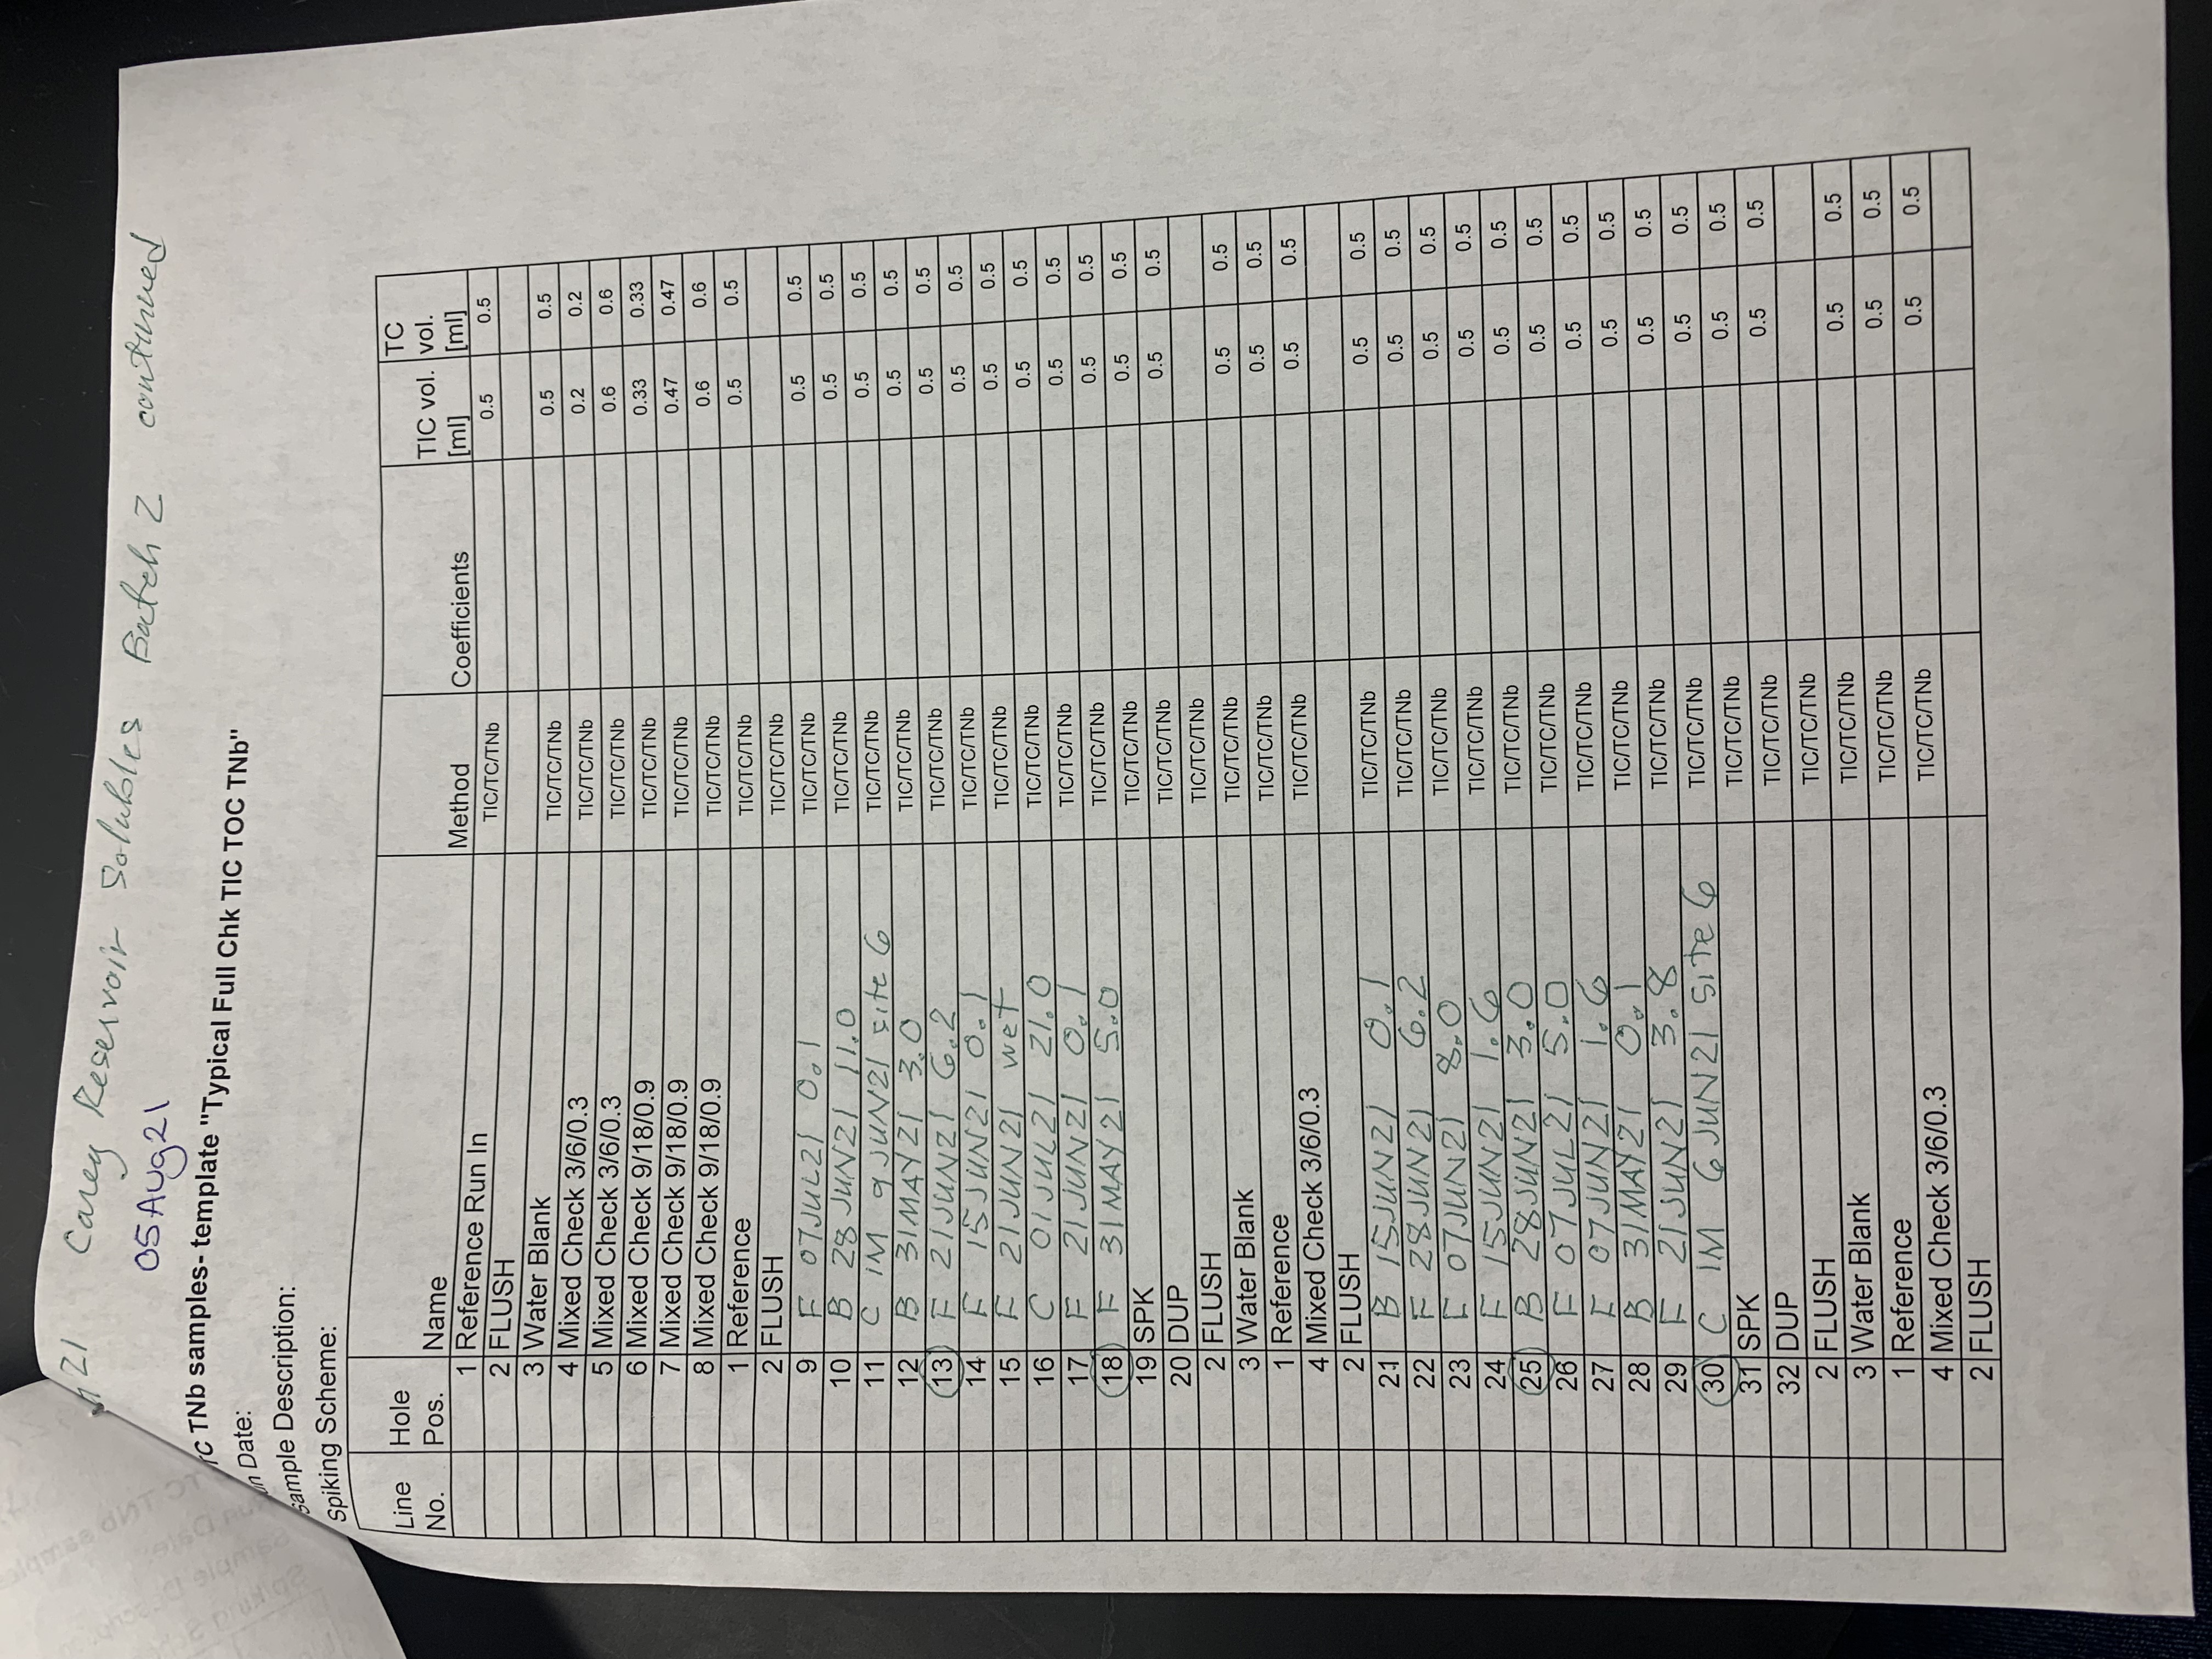 21 Carey Reservoir Solubles Batch 2 continued
05Aug21
TC TNb samples- template "Typical Full Chk TIC TOC TNb"
Date:
Sample Description:
Spiking Scheme:
Line No. Hole Pos. Name Method Coefficients TIC vol. [ml] TC vol. [ml]
1 Reference Run In TIC/TC/TNb 0.5 0.5
2 FLUSH
3 Water Blank TIC/TC/TNb 0.5 0.5
4 Mixed Check 3/6/0.3 TIC/TC/TNb 0.2 0.2
5 Mixed Check 3/6/0.3 TIC/TC/TNb 0.6 0.6
6 Mixed Check 9/18/0.9 TIC/TC/TNb 0.33 0.33
7 Mixed Check 9/18/0.9 TIC/TC/TNb 0.47 0.47
8 Mixed Check 9/18/0.9 TIC/TC/TNb 0.6 0.6
1 Reference TIC/TC/TNb 0.5 0.5
2 FLUSH TIC/TC/TNb
9 F 07JUL21 0.1 TIC/TC/TNb 0.5 0.5
10 B 28JUN21 11.0 TIC/TC/TNb 0.5 0.5
11 C IM 9JUN21 site 6 TIC/TC/TNb 0.5 0.5
12 B 31MAY21 3.0 TIC/TC/TNb 0.5 0.5
13 F 21JUN21 6.2 TIC/TC/TNb 0.5 0.5
14 F 15JUN21 0.1 TIC/TC/TNb 0.5 0.5
15 F 21JUN21 wet TIC/TC/TNb 0.5 0.5
16 C 01JUL21 21.0 TIC/TC/TNb 0.5 0.5
17 F 21JUN21 0.1 TIC/TC/TNb 0.5 0.5
18 F 31MAY21 5.0 TIC/TC/TNb 0.5 0.5
19 SPK TIC/TC/TNb 0.5 0.5
20 DUP TIC/TC/TNb 0.5 0.5
2 FLUSH TIC/TC/TNb
3 Water Blank TIC/TC/TNb 0.5 0.5
1 Reference TIC/TC/TNb 0.5 0.5
4 Mixed Check 3/6/0.3 TIC/TC/TNb 0.5 0.5
2 FLUSH
21 B 15JUN21 0.1 TIC/TC/TNb 0.5 0.5
22 F 28JUN21 6.2 TIC/TC/TNb 0.5 0.5
23 F 07JUN21 8.0 TIC/TC/TNb 0.5 0.5
24 F 15JUN21 1.6 TIC/TC/TNb 0.5 0.5
25 B 28JUN21 3.0 TIC/TC/TNb 0.5 0.5
26 F 07JUL21 5.0 TIC/TC/TNb 0.5 0.5
27 F 07JUN21 1.6 TIC/TC/TNb 0.5 0.5
28 B 31MAY21 0.1 TIC/TC/TNb 0.5 0.5
29 F 21JUN21 3.8 TIC/TC/TNb 0.5 0.5
30 C IM 6JUN21 site 6 TIC/TC/TNb 0.5 0.5
31 SPK TIC/TC/TNb 0.5 0.5
32 DUP TIC/TC/TNb 0.5 0.5
2 FLUSH TIC/TC/TNb
3 Water Blank TIC/TC/TNb 0.5 0.5
1 Reference TIC/TC/TNb 0.5 0.5
4 Mixed Check 3/6/0.3 TIC/TC/TNb 0.5 0.5
2 FLUSH